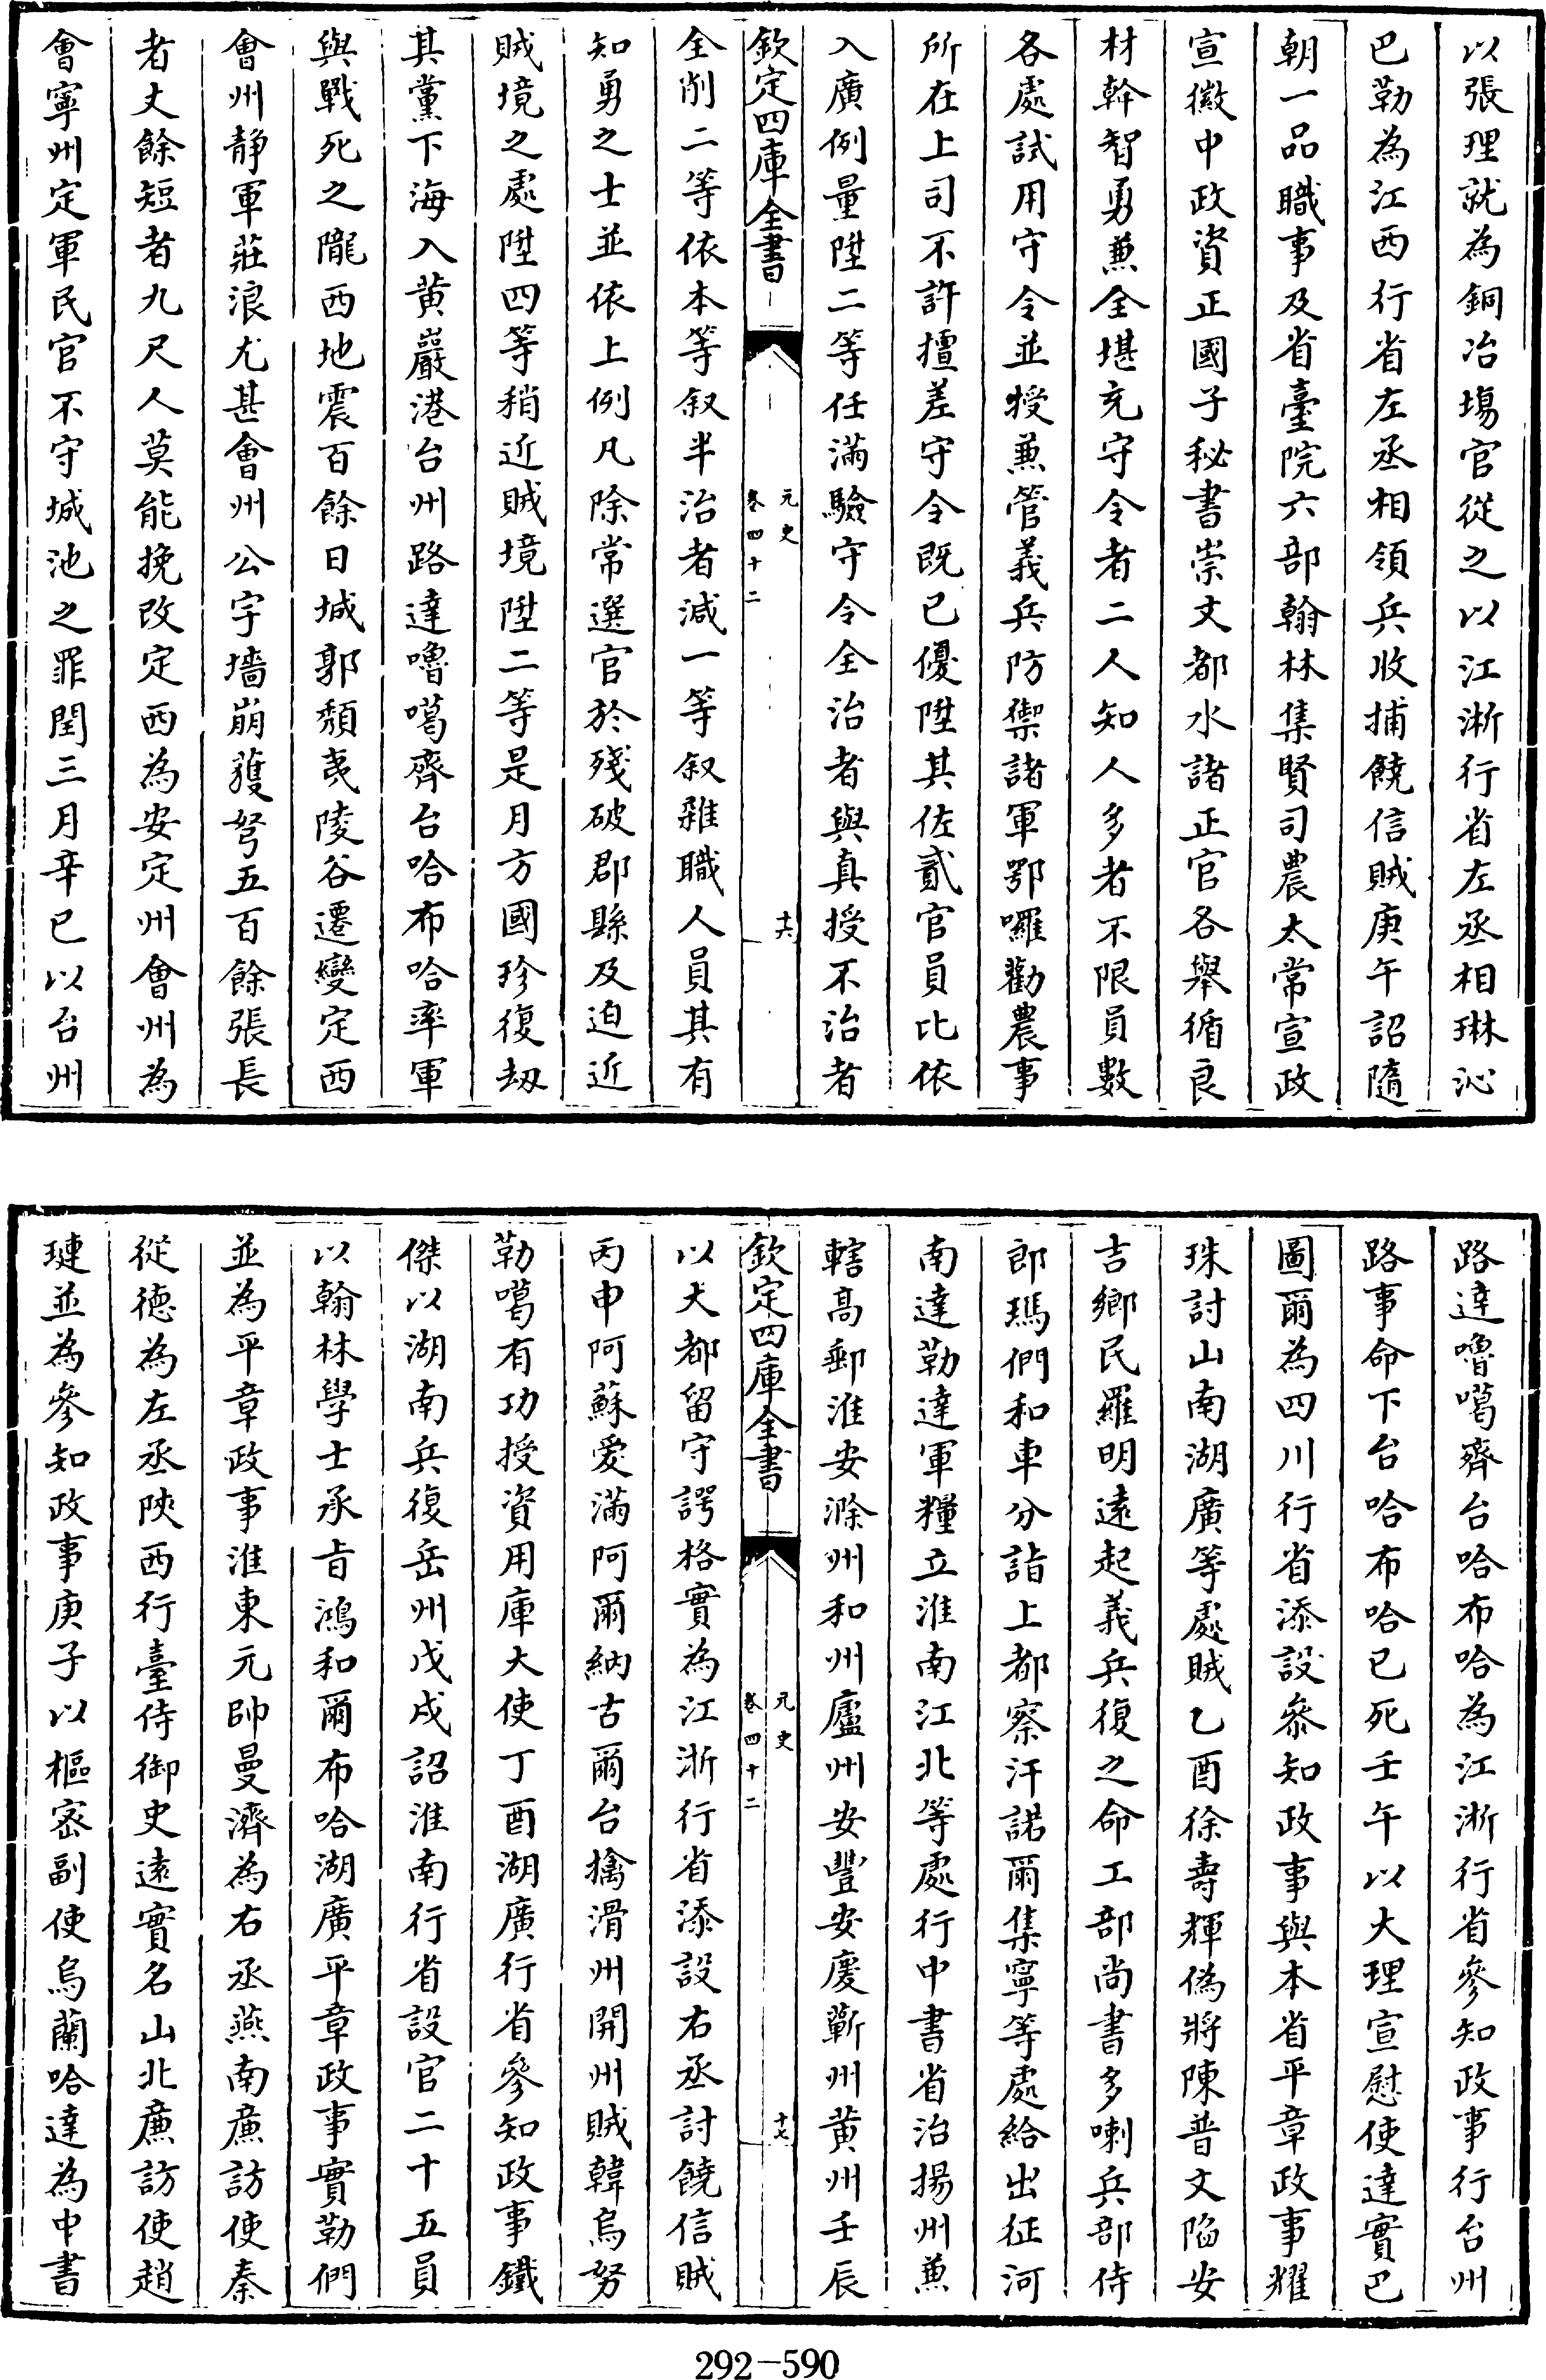 以張理就為銅冶場官從之以江淅行省左丞相琳沁
巴勒為江西行省左丞相領兵收捕饒信賊庚午詔隨
朝一品職事及省臺院六部翰林集賢司農太常宣政
宣徽中政資正國子秘書崇文都水諸正官各舉循良
材幹智勇兼全堪充守令者二人知人多者不限員數
各處試用守令並授兼管義兵防禦諸軍鄂囉勸農事
所在上司不許擅差守令既已優陞其佐貳官員比依
入廣例量陞二等任滿驗守令全治者與真授不治者
欽定四庫全書
元史
卷四十二
十六
全削二等依本等叙半治者減一等叙雜職人員其有
知勇之士並依上例凡除常選官於殘破郡縣及迫近
賊境之處陞四等稍近賊境陞二等是月方國珍復刼
其黨下海入黄巖港台州路達嚕噶齊台哈布哈率軍
與戰死之隴西地震百餘日城郭頽夷陵谷遷變定西
會州静軍莊浪尤甚會州公宇墻崩獲弩五百餘張長
者丈餘短者九尺人莫能挽改定西為安定州會州為
會寧州定軍民官不守城池之罪閏三月辛巳以台州
路達嚕噶齊台哈布哈為江淅行省參知政事行台州
路事命下台哈布哈已死壬午以大理宣慰使達實巴
圖爾為四川行省添設叅知政事與本省平章政事耀
珠討山南湖廣等處賊乙酉徐壽輝偽將陳普文陷安
吉鄉民羅明遠起義兵復之命工部尚書多喇兵部侍
郎瑪們和車分詣上都察汗諾爾集寧等處給出征河
南達勒達軍糧立淮南江北等處行中書省治揚州兼
轄高郵淮安滁州和州廬州安豐安慶蘄州黄州壬辰
欽定四庫全書
元史
卷四十二
十七
以大都留守諤格實為江淅行省添設右丞討饒信賊
丙申阿蘇愛滿阿爾納古爾台擒滑州開州賊韓烏努
勒噶有功授資用庫大使丁酉湖廣行省參知政事鐵
傑以湖南兵復岳州戊戌詔淮南行省設官二十五員
以翰林學士承旨鴻和爾布哈湖廣平章政事實勒們
並為平章政事淮東元帥曼濟為右丞燕南廉訪使秦
從德為左丞陝西行臺侍御史遠實名山北廉訪使趙
璉並為參知政事庚子以樞密副使烏蘭哈達為中書
292-590